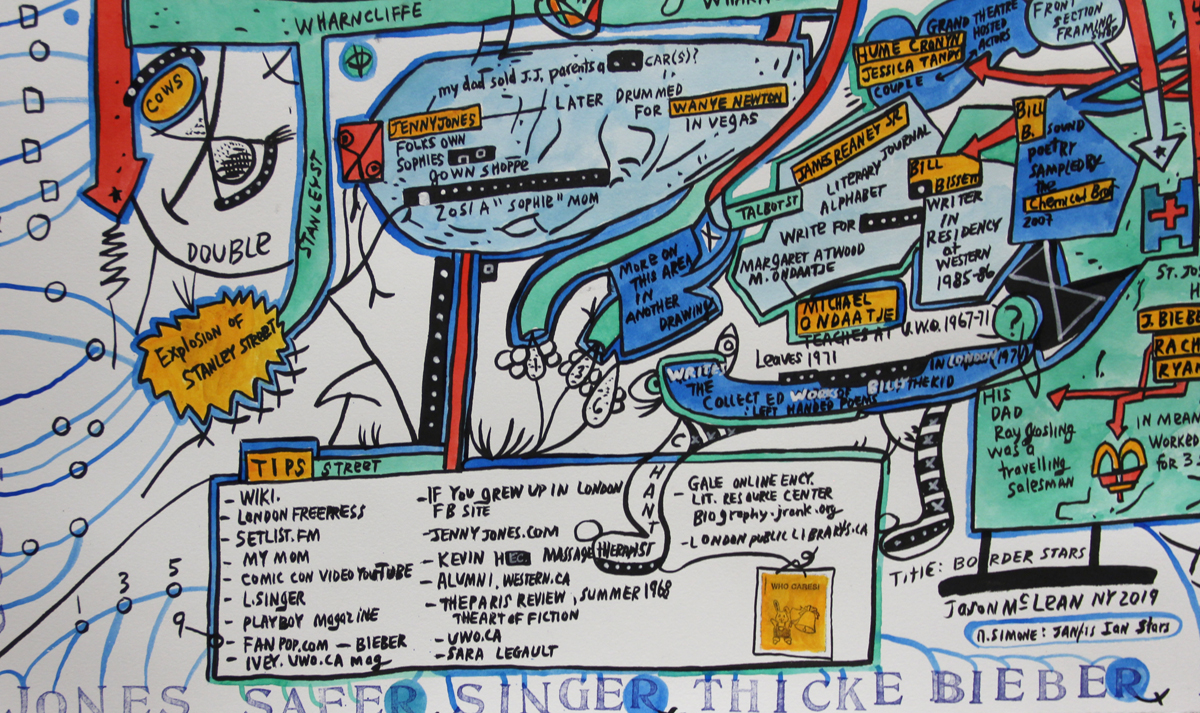 WHARNCLIFFE
COWS
DOUBLE
STANLEY ST
Explosion OF
STANLEY STREET
my dad sold J.J. parents a CAR(S)?
JENNY JONES
LATER DRUMMED
FOR WANYE NEWTON
IN VEGAS
FOLKS OWN
SOPHIES
GOWN SHOPPE
ZOSIA "SOPHIE" MOM
GRAND THEATRE
HOSTED
ACTORS
HUME CRONYN
JESSICA TANDY
COUPLE
FRONT
SECTION
FRAMING
SHOP
JAMS REANEY SR.
LITERARY JOURNAL
ALPHABET
TALBOT ST
WRITE FOR
MARGARET ATWOOD
M. ONDAATJE
BILL
BISSETT
WRITER
IN
RESIDENCY
at
WESTERN
1985-86
BILL
B. SOUND
POETRY
SAMPLED BY
the
Chemical Bros
2007
MORE ON
THIS AREA
IN
ANOTHER
DRAWING
MICHAEL
ONDAATJE
TEACHES AT U.W.O. 1967-71
Leaves 1971
?
WRITES
THE
COLLECTED WORKS OF BILLY THE KID
IN LONDON (1970)
LEFT HANDED POEMS
ST. JO
H
J. BIEBE
RACH
RYAN
HIS
DAD
Ray Gosling
was a
travelling
salesman
IN MEAN
WORKED
FOR 3.5
TIPS STREET
- WIKI.
- LONDON FREEPRESS
- SETLIST.FM
MY MOM
- COMIC CON VIDEO YOUTUBE
- L.SINGER
- PLAYBOY MAGAZINE
- FANPOP.COM - BIEBER
- IVEY.UWO.CA mag
- IF YOU GREW UP IN LONDON
FB SITE
- JENNYJONES.COM
- KEVIN HEC MASSAGE THERAPIST
- ALUMNI.WESTERN.CA
- THE PARIS REVIEW, SUMMER 1968
THE ART OF FICTION
- UWO.CA
- SARA LEGAULT
CHANT
- GALE ONLINE ENCY.
LIT. RESOURCE CENTER
Biography.jrank.org
- LONDON PUBLIC LIBRARYS.CA
WHO CARES!
1
3
5
9
TITLE: BOARDER STARS
Jason McLean NY 2019
N.SIMONE: JANIS Ian Stars
JONES SAFER SINGER THICKE BIEBER